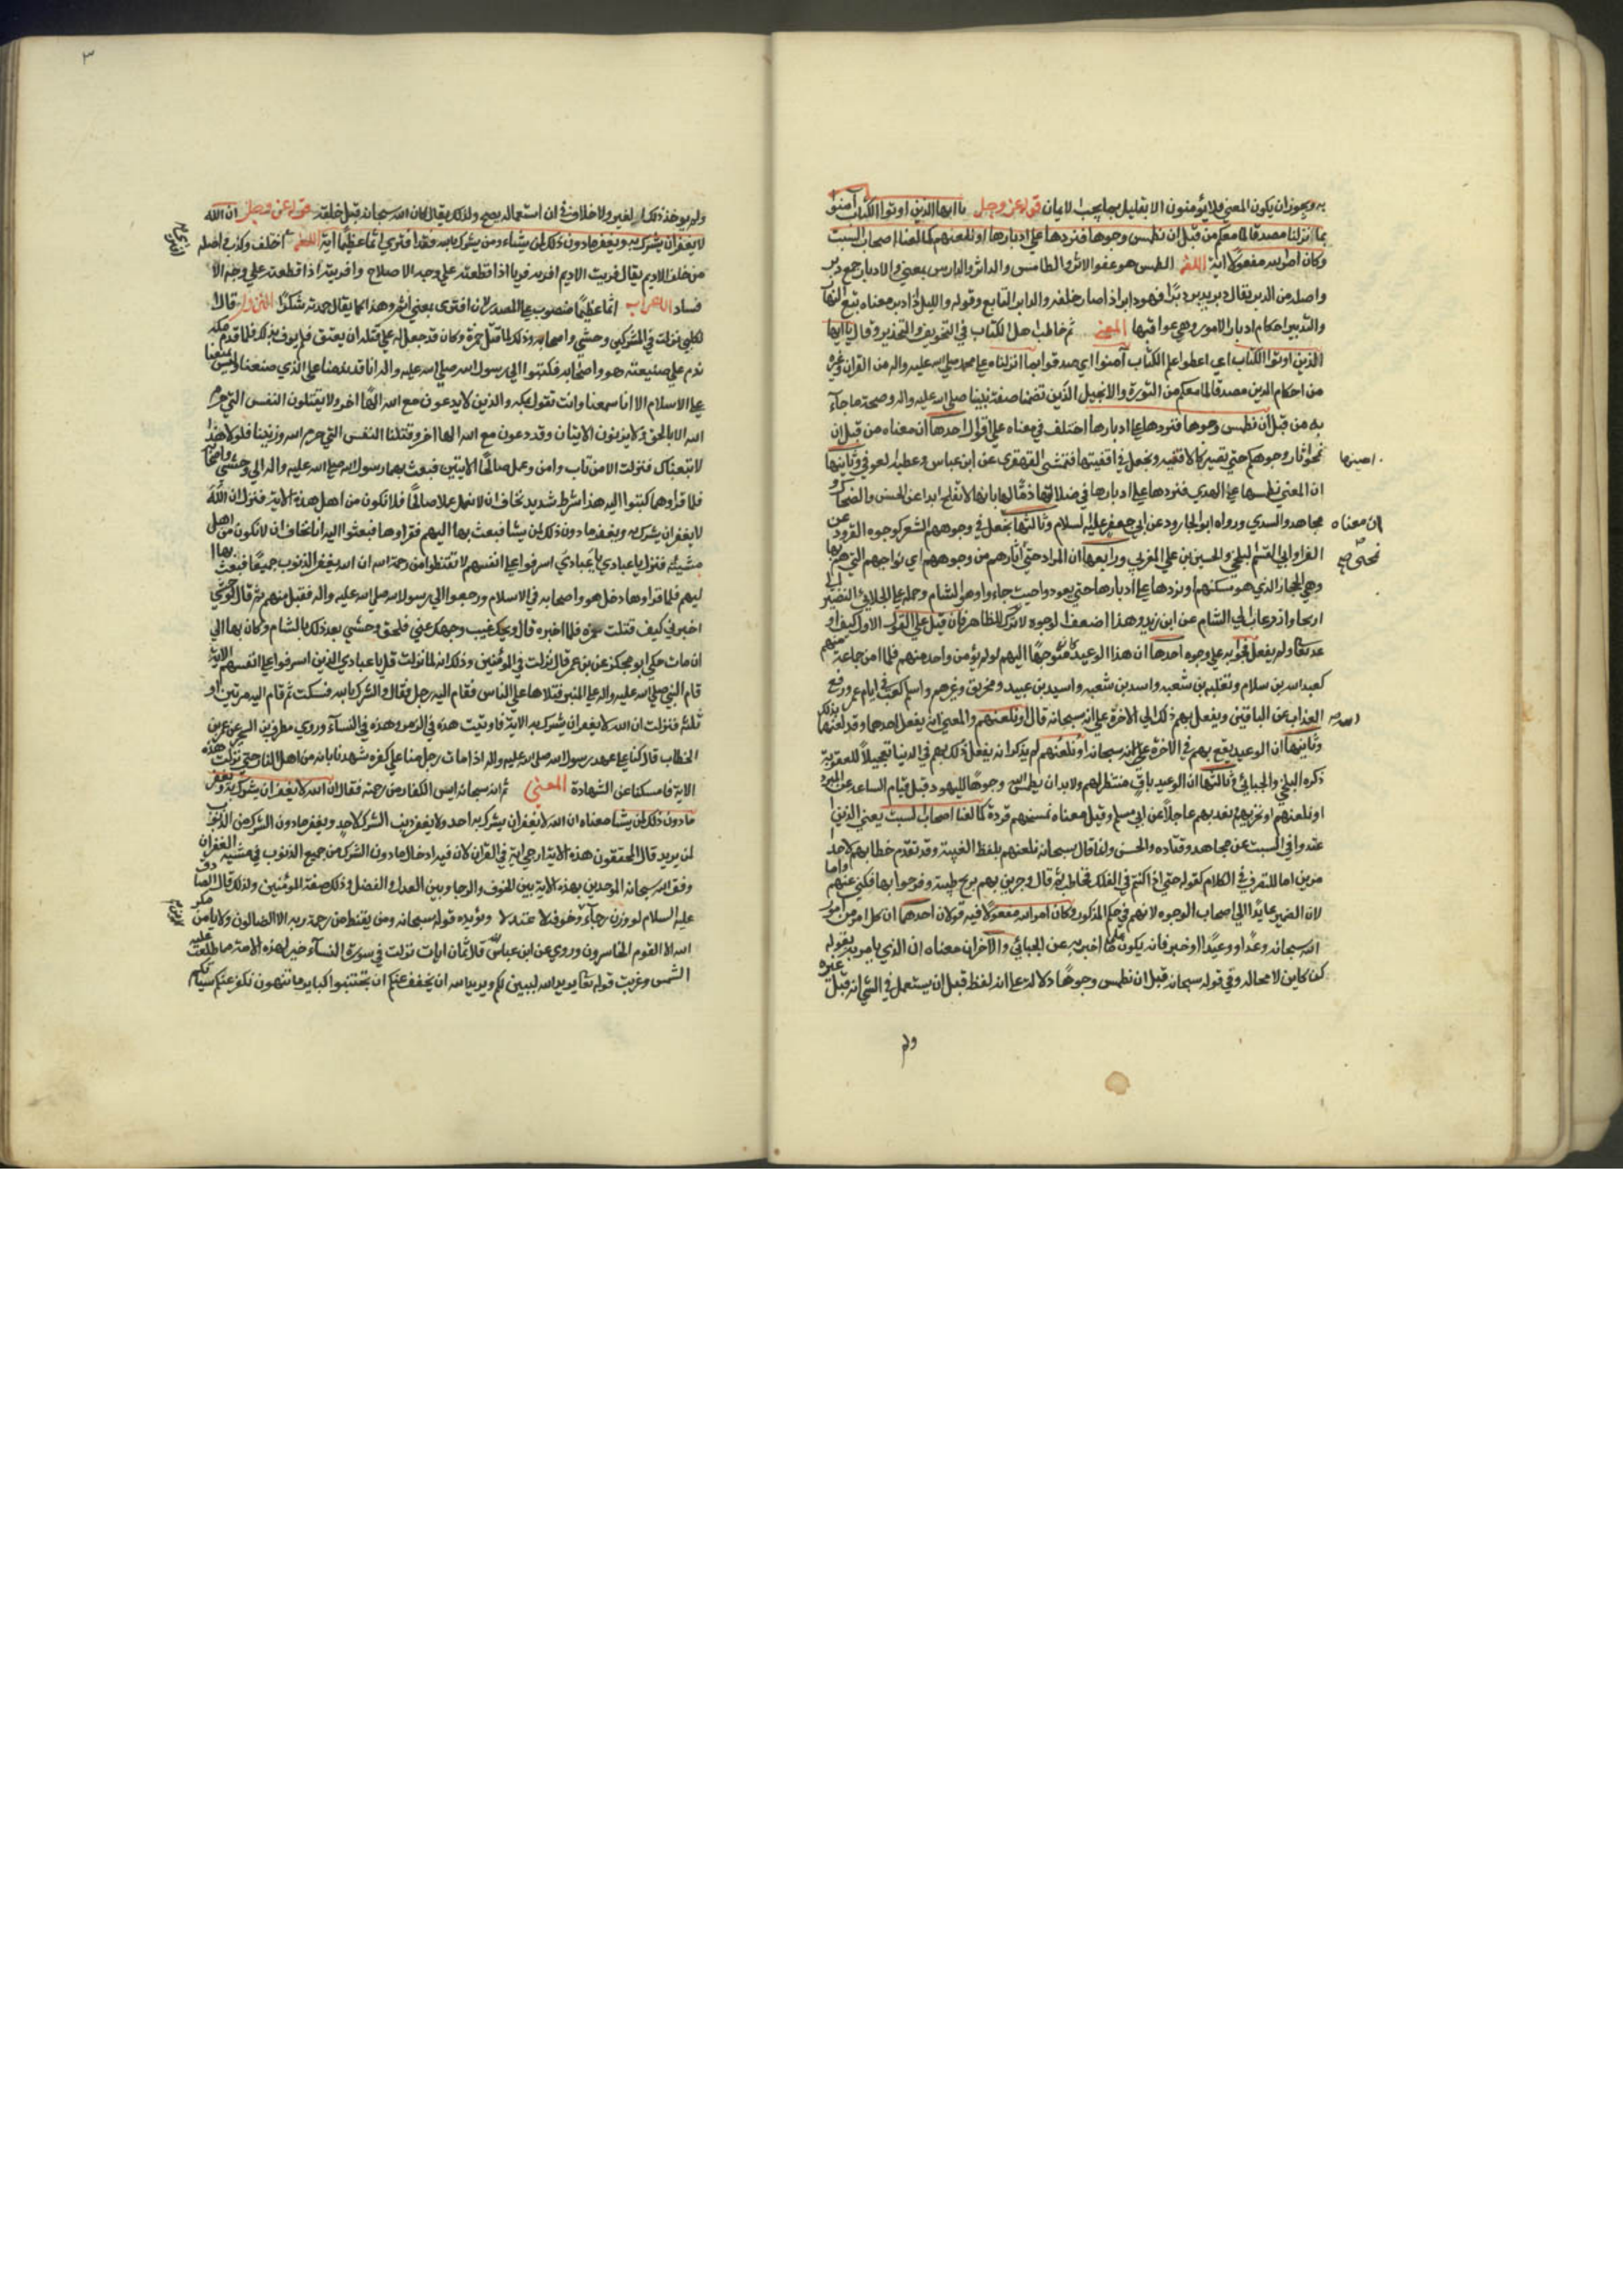 به ويجوز ان يكون المعني فلا يؤمنون الا بقليل بما يجب الايمان قوله عز وجل يا ايها الذين اوتوا الكتاب آمنوا
بما نزلنا مصدقا لما معكم من قبل ان نطمس وجوها فنردها علي ادبارها او نلعنهم كما لعنا اصحاب السبت
وكان امر الله مفعولا اية اللغه الطمس هو عفو الاثر والطامس والداثر والدارس بمعني والادبار جمع دبر
واصله من الدبر يقال دبر يدبر دبرا فهو دابر اذا صار خلفه والدابر التابع وقوله والليل اذا دبر معناه تبع النهار
والتدبير احكام ادبار الامور وهي عواقبها المعني ثم خاطب اهل الكتاب في التخويف والتحذير وقال يا ايها
الذين اوتوا الكتاب اي اعطوا علم الكتاب آمنوا اي صدقوا بما انزلناه علي محمد صلي الله عليه واله من القران وغيره
من احكام الدين مصدقا لما معكم من التورية والانجيل الذين تضمنا صفة نبينا صلي الله عليه واله وصحة ما جآء
به من قبل ان نطمس وجوها فنردها علي ادبارها اختلف في معناه علي اقوال احدها ان معناه من قبل ان
نمحو اثار وجوهكم حتي تصير كالاقفيه ونجعل في اقفيتها فتمشي القهقري عن ابن عباس وعطيه العوفي وثانيها
ان المعني نطمسها عن الهدي فنردها علي ادبارها في ضلالتها ذما لها بانها لا تفلح ابدا عن الحسن والضحاك و
ان معناه
مجاهد والسدي ورواه ابو الجارود عن ابي جعفر عليه السلام وثالثها نجعل في وجوههم الشعر كوجوه القرود عن
الفرا وابي القسم البلخي والحسين بن علي المغربي ورابعها ان المراد حتي
نمحي صح
اثارهم من وجوههم اي نواحيهم التي هم بها
وهي الحجاز الذي هو مسكنهم ونردها علي ادبارها حتي يعودوا حيث جاءوا وهو الشام وحمله علي اجلاء بني النضير الي
اريحا واذرعات الي الشام عن ابن زيد وهذا اضعف الوجوه لانه ترك للظاهر فان قيل علي القول الاول كيف او
عد سبحانه ولم يفعل فجوابه علي وجوه احدها ان هذا الوعيد كان متوجها اليهم لو لم يؤمن واحد منهم فلما امن جماعة منهم
كعبد الله بن سلام وثعلبه بن شعبه واسد بن شعبه واسيد بن عبيد ومخريق وغيرهم واسلم كعب في ايام عمر ورفع
العذاب عن الباقين ويفعل بهم ذلك الي الاخرة علي انه سبحانه قال او نلعنهم والمعني انه يفعل احدهما وقد لعنها بذلك
وثانيها ان الوعيد يقع بهم في الاخرة علي انه سبحانه او نلعنهم لم يذكر انه يفعل ذلك بهم في الدنيا تعجيلا للعقوبة
ذكره البلخي والجبائي وثالثها ان الوعيد باق منتظر لهم ولابد ان يطمس الله وجوها لليهود قبل قيام الساعه عن المبرد
او نلعنهم او نخزيهم نعذبهم عاجلا عن ابي مسلم وقيل معناه نمسخهم قردة كما لعنا اصحاب السبت يعني الذين ا
عتدوا في السبت عن مجاهد وقتاده والحسن وانما قال سبحانه نلعنهم بلفظ الغيبة وقد تقدم خطابهم لاحد ا
مرين اما للتصرف في الكلام كقوله حتي اذا كنتم في الفلك فخاطب ثم قال وجرين بهم بريح طيبة وفرحوا بها فكني عنهم واما
لان الضمير عايدا الي اصحاب الوجوه لانهم في حكم المذكورين وكان امر الله مفعولا فيه قولان احدهما ان كل امر من امور
الله سبحانه وعدا او وعيدا او خبر فانه يكون علي ما اخبر به عن الجبائي والآخر ان معناه ان الذي يامر به بقوله
كن كاين لا محاله وفي قوله سبحانه قبل ان نطمس وجوها دلالة علي ان لفظ قبل ان يستعمل في الشي انه قبل غيره
ولم
٣
ولم يوجد ذلك الغير ولا خلاف في ان استعماله يصح ولذلك يقال كان الله سبحانه قبل خلقه قوله عز وجل ان الله
لا يغفر ان يشرك به ويغفر ما دون ذلك لمن يشاء ومن يشرك بالله فقد افتري اثما عظيما اية اللغه اختلف وكذب اصله
من خلف الاديم يقال فريت الاديم افريه فريا اذا قطعته علي وجه الاصلاح وافريته اذا قطعته علي وجه الا
فساد الاعراب اثما عظيما منصوب علي المصدر لان افتري بمعني اثم وهذا كما يقال حمدته شكرا النزول قال ا
لكلبي نزلت في المشركين وحشي واصحابه وذلك لما قتل حمزة وكان قد جعل له علي قتله ان يعتق فلم يوف بذلك فلما قدم مكه
ندم علي صنيعته هو واصحابه فكتبوا الي رسول الله صلي الله عليه واله انا قد ندمنا علي الذي صنعنا وليس يمنعنا
علي الاسلام الا انا سمعنا وانت تقول بمكه والذين لا يدعون مع الله الها اخر ولا يقتلون النفس التي حرم
الله الا بالحق ولا يزنون الايتان وقد دعون مع الله الها اخر وقتلنا النفس التي حرم الله وزنينا فلولا هذا
لاتبعناك فنزلت الا من تاب وامن وعمل صالحا الايتين فبعث بهما رسول الله صلي الله عليه واله الي وحشي واصحابه
فلما قراوهما كتبوا اليه هذا شرط شديد نخاف ان لا نعمل عملا صالحا فلا نكون من اهل هذه الاية فنزل ان الله
لا يغفر ان يشرك به ويغفر ما دون ذلك لمن يشا فبعث بها اليهم فقراوها فبعثوا اليه انا نخاف ان لا نكون من اهل
مشيئته فنزل يا عبادي يا عبادي اسرفوا علي انفسهم لا تقنطوا من رحمة الله ان الله يغفر الذنوب جميعا فبعث بها ا
ليهم فلما قراوها دخل هو واصحابه في الاسلام ورجعوا الي رسول الله صلي الله عليه واله فقبل منهم ثم قال لوحشي
اخبرني كيف قتلت حمزه فلما اخبره قال ويحك غيب وجهك عني فلحق وحشي بعد ذلك بالشام وكان بها الي
ان مات حكي ابو مجلز عن بن عمر قال نزلت في المؤمنين وذلك انه لما نزلت قل يا عبادي الذين اسرفوا علي انفسهم الاية
قام النبي صلي الله عليه واله علي المنبر فتلاها علي الناس فقام اليه رجل فقال والشرك بالله فسكت ثم قام اليه مرتين او
ثلثه فنزلت ان الله لا يغفر ان يشرك به الاية فاوتيت هذه في الزمر وهذه في النسآء وروي مطرف بن الشخير عن عمر بن
الخطاب قال كنا علي عهد رسول الله صلي الله عليه واله اذا مات رجل منا علي كفره شهدنا بانه من اهل النار حتي نزلت هذه
الاية فامسكنا عن الشهادة المعني ثم انه سبحانه ايس الكفار من رحمته فقال ان الله لا يغفر ان يشرك به ويغفر
ما دون ذلك لمن يشا معناه ان الله لا يغفر ان يشرك به احد ولا يغفر ذنب الشرك لاحد ويغفر ما دون الشرك من الذنوب
لمن يريد قال المحققون هذه الاية ارجي اية في القران لان فيه ادخال ما دون الشرك من جميع الذنوب في مشية الغفران
وفق الله سبحانه الموحدين بهذه الاية بين الخوف والرجا وبين العدل والفضل وذلك صفة المؤمنين ولذلك قال الصادق
عليه السلام لو وزن رجآء وخوفه لاعتدلا ويؤيده قوله سبحانه ومن يقنط من رحمة ربه الا الضالون ولا يامن مكر
الله الا القوم الخاسرون وروي عن ابن عباس انه قال ثمان ايات نزلت في سورة النسآء خير لهذه الامة مما طلعت عليه
الشمس وغربت قوله تعا يريد الله ليبين لكم ويريد الله ان يخفف عنكم ان تجتنبوا كباير ما تنهون نكفر عنكم سياتكم